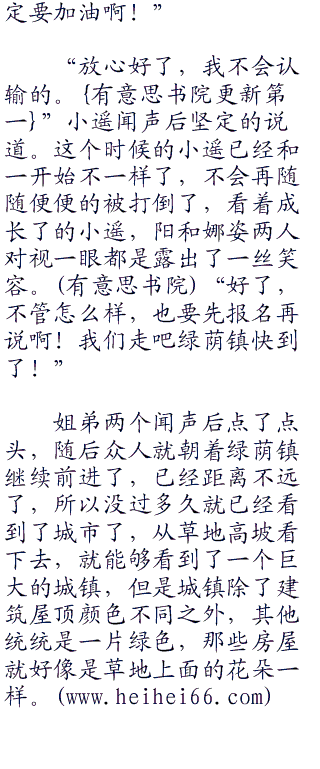 定要加油啊！”
“放心好了，我不会认
输的。{有意思书院更新第
一}”小遥闻声后坚定的说
道。这个时候的小遥已经和
一开始不一样了，不会再随
随便便的被打倒了，看着成
长了的小遥，阳和娜姿两人
对视一眼都是露出了一丝笑
容。(有意思书院)“好了，
不管怎么样，也要先报名再
说啊！我们走吧绿荫镇快到
了！”
姐弟两个闻声后点了点
头，随后众人就朝着绿荫镇
继续前进了，已经距离不远
了，所以没过多久就已经看
到了城市了，从草地高坡看
下去，就能够看到了一个巨
大的城镇，但是城镇除了建
筑屋顶颜色不同之外，其他
统统是一片绿色，那些房屋
就好像是草地上面的花朵一
样。(www.heihei66.com)